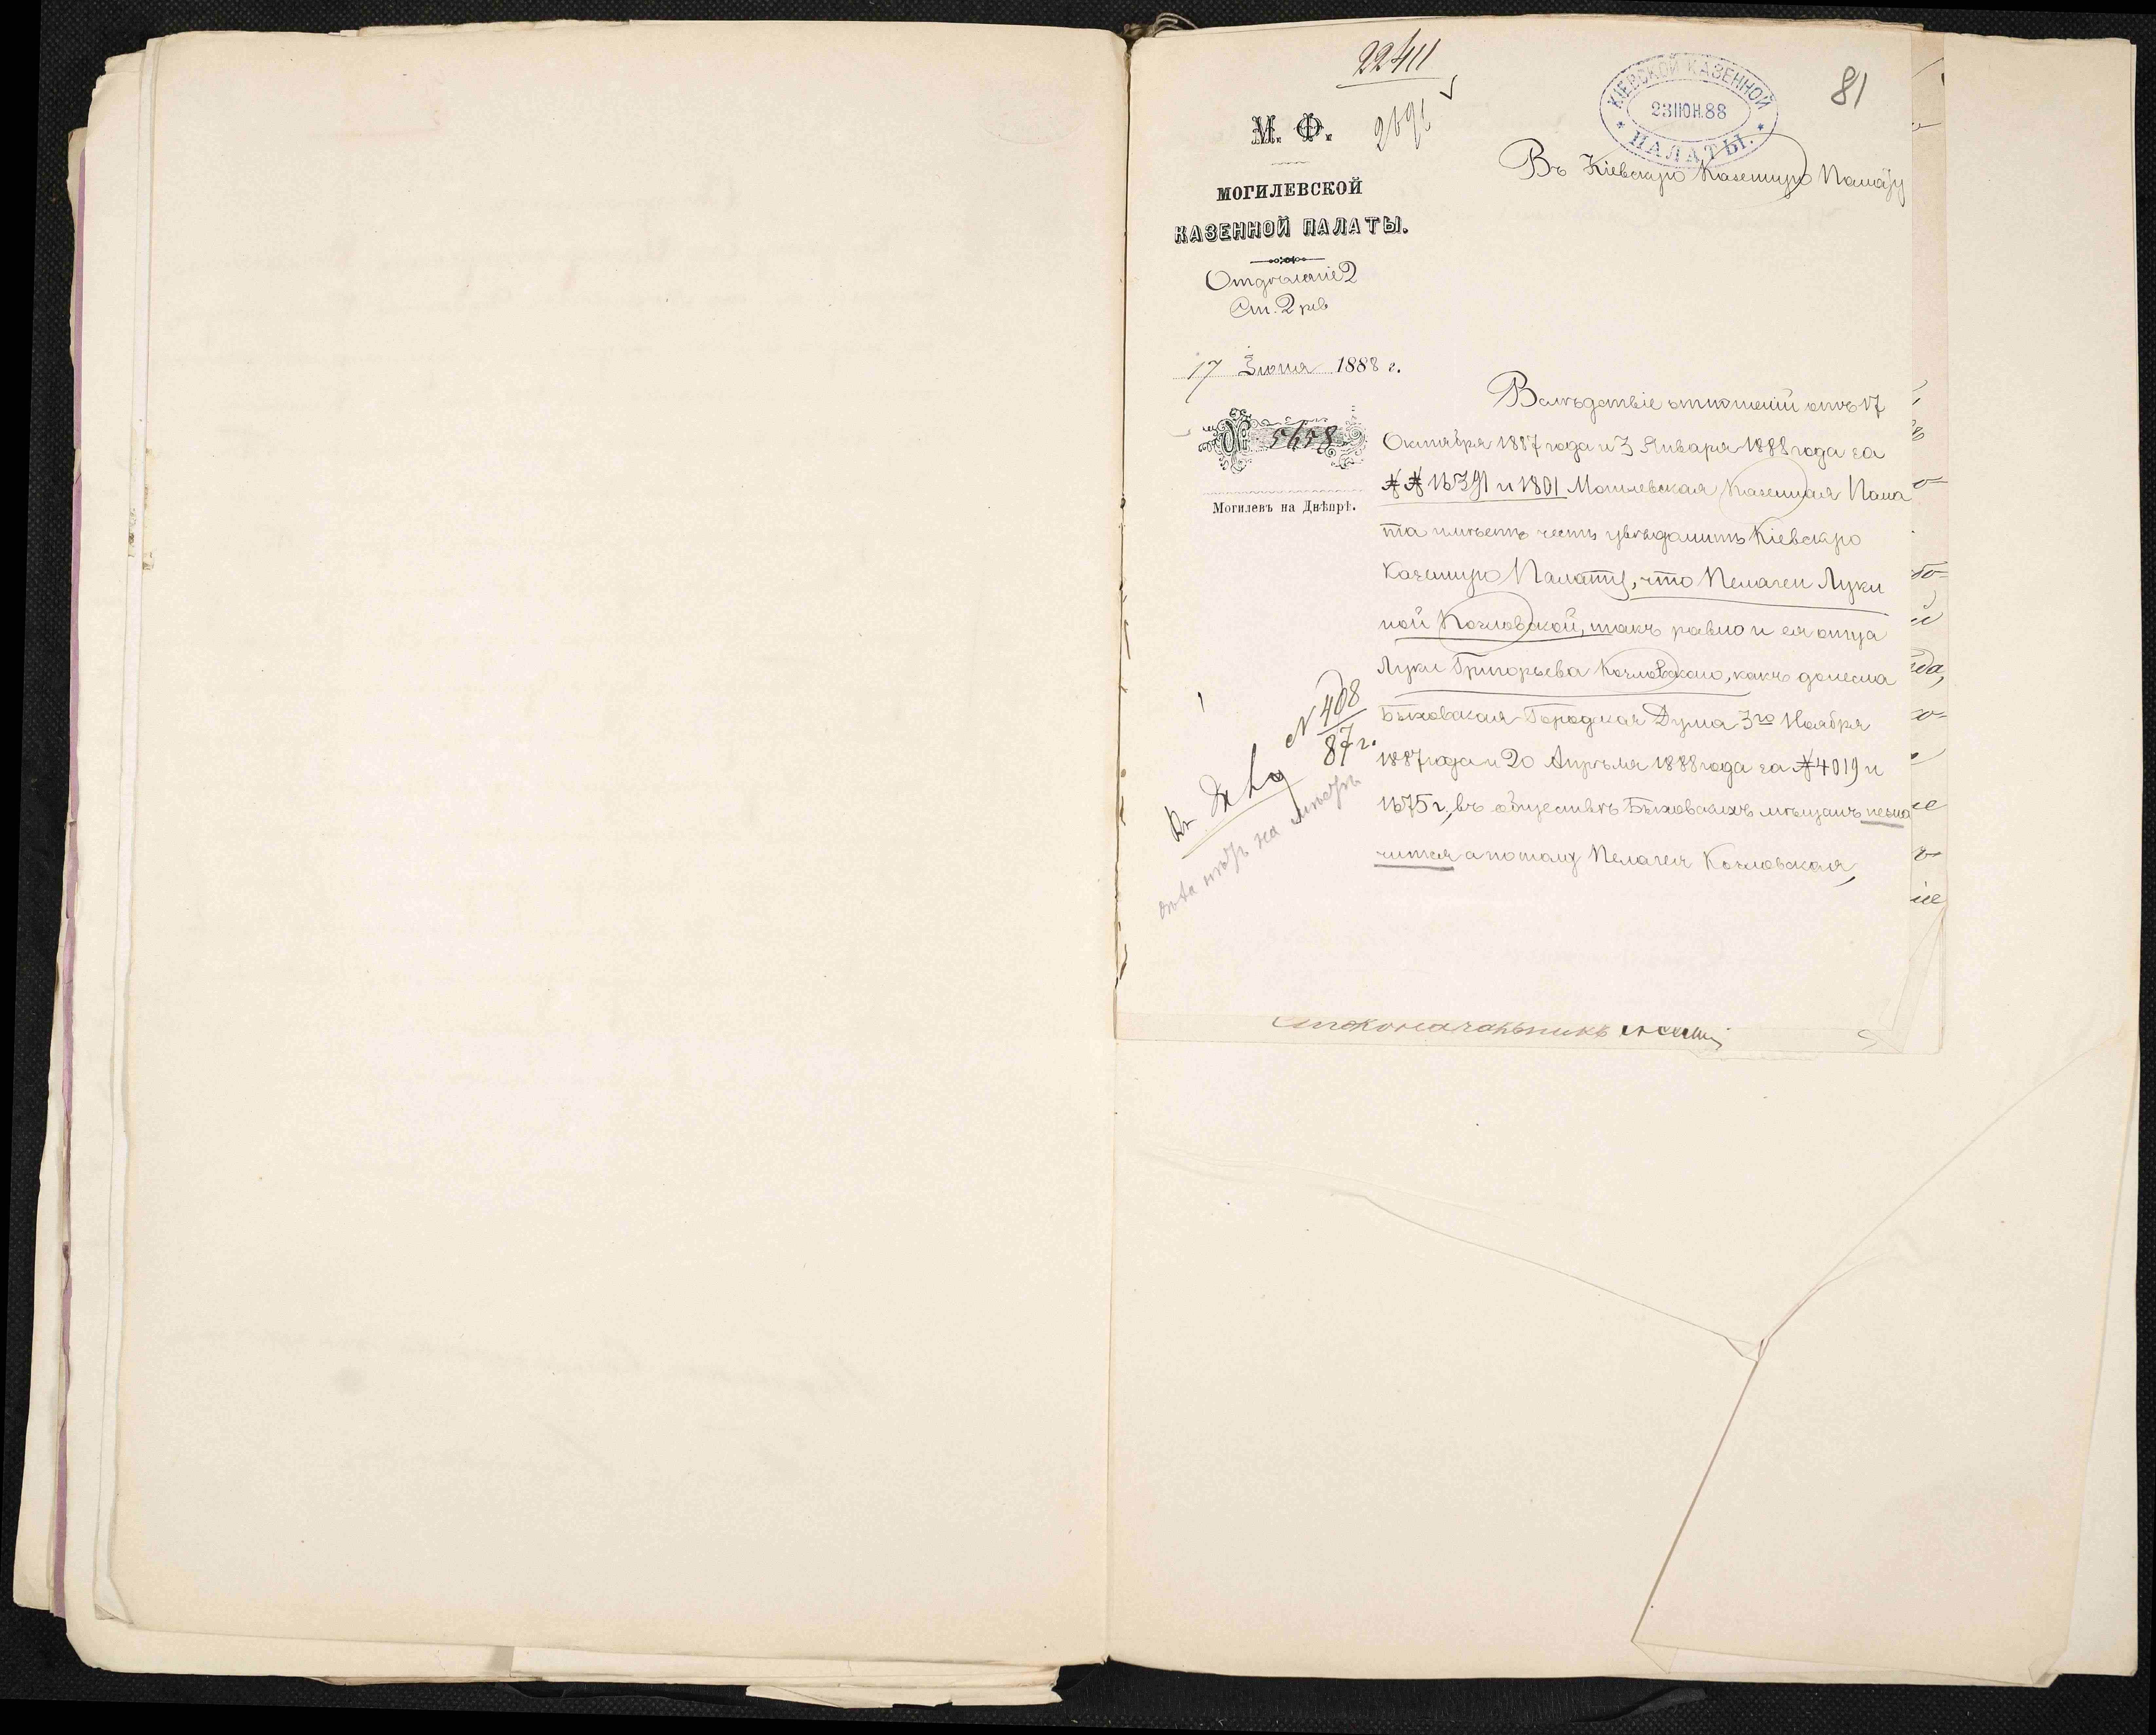 22411
81
КІЕВСКОЙ КАЗЕННОЙ
23 ІЮН. 88
ПАЛАТЫ.
М. Ф.
МОГИЛЕВСКОЙ
КАЗЕННОЙ ПАЛАТЫ.
Отдѣленіе 2
Ст. 2 рев
17 Іюня 1888 г.
№ 5658
Могилевъ на Днѣпрѣ.
Въ Кіевскую Казенную Палату
Вслѣдствіе отношеній отъ 17
Октября 1887 года и 3 Января 1888 года за
№№ 16391 и 1801 Могилевская Казенная Пала
та имѣетъ честь увѣдомить Кіевскую
Казенную Палату, что Пелагеи Луки
ной Козловской, такъ равно и ея отца
Луки Григорьева Козловскаго, какъ донесла
Быховская Городская Дума 3го Ноября
1887 года и 20 Апрѣля 1888 года за № 4019 и
1675 г, въ обществѣ Быховскихъ мѣщанъ незна
чится а потому Пелагея Козловская,
N 408
87 г.
Къ дѣлу
дѣла нѣтъ на
Столоначальникъ